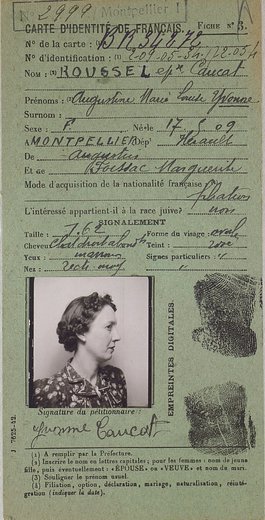 N° 2999 Montpellier I
CARTE D'IDENTITÉ DE FRANÇAIS. FICHE N° 3.
N° de la carte :
N° d'identification : (1)
Nom : (2) ROUSSEL epse Caucat
Prénoms : (3) Augustine Marie Louise Yvonne
Surnom :
Sexe : F Né le 17 5 09
A MONTPELLIER Dépt Hérault
De Augustin
Et de Boissac Marguerite
Mode d'acquisition de la nationalité française
filiation
L'intéressé appartient-il à la race juive? non
SIGNALEMENT
Taille : 1.62 Forme du visage : ovale
Cheveux Teint :
Yeux : marrons Signes particuliers : "
Nez : rect. moy "
EMPREINTES DIGITALES
Signature du pétitionnaire :
Yvonne Caucat
(1) A remplir par la Préfecture.
(2) Inscrire le nom en lettres capitales; pour les femmes : nom de jeune
fille, puis éventuellement : « ÉPOUSE » ou « VEUVE » et nom du mari.
(3) Souligner le prénom usuel.
(4) Filiation, option, déclaration, mariage, naturalisation, réinté-
gration (indiquer la date).